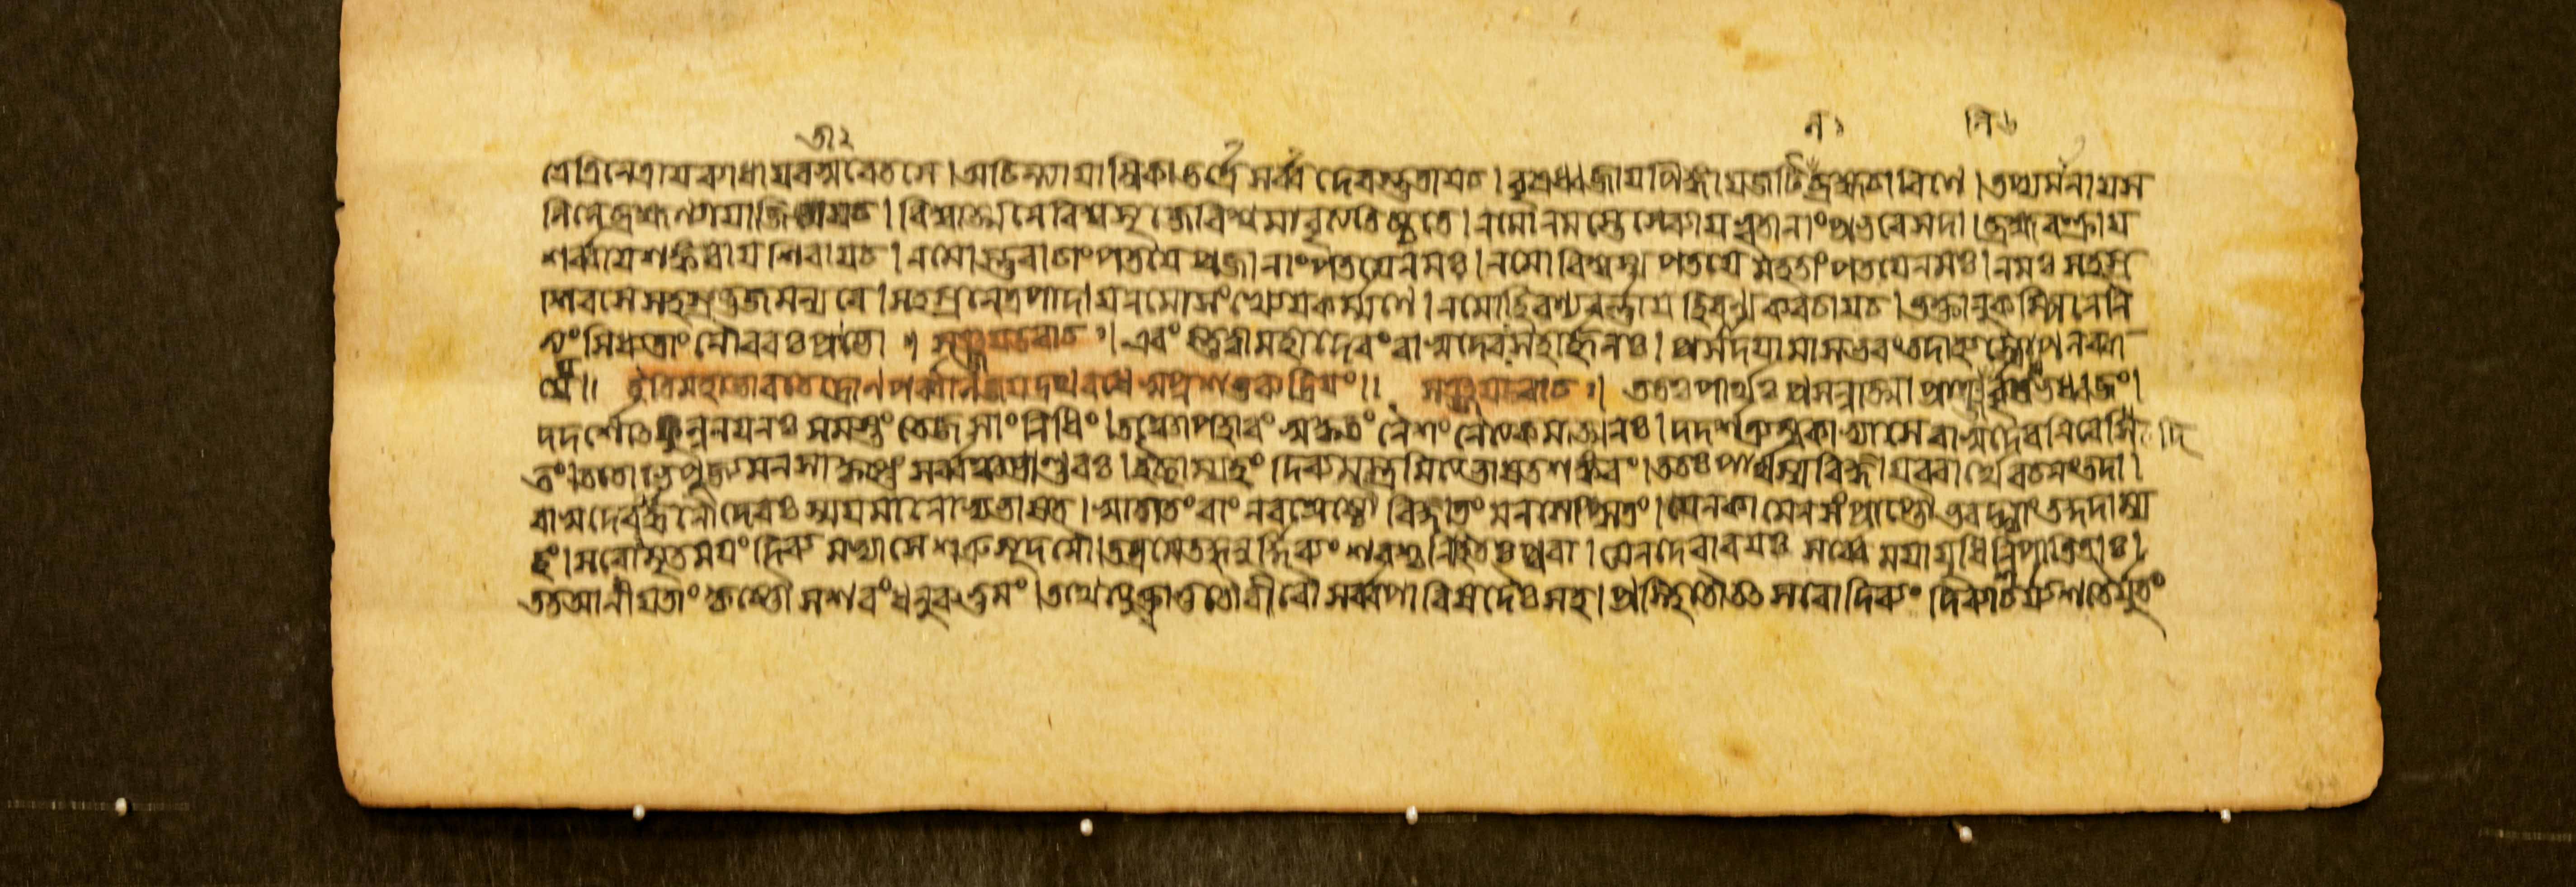 ত্রে ত্রিনেত্রায় ব্যাধায় বসুরেতসে । অচিন্ত্যায়াম্বিকাভর্ত্রে সর্ব্বদেবস্তুতায় চ । বৃষধ্বজায় পিঙ্গায় জটিনে ব্রহ্মচারিণে । তপ্যমানায় স
লিলে ব্রহ্মণ্যায়াজিতায় চ । বিশ্বাত্মনে বিশ্বসৃজে বিশ্বমাবৃত্য তিষ্ঠতে । নমো নমস্তে সেব্যায় ভূতানাং প্রভবে সদা । ব্রহ্মবক্ত্রায়
শর্ব্বায় শঙ্করায় শিবায় চ । নমোস্তু বাচাং পতয়ে প্রজানাং পতয়ে নমঃ । নমো বিশ্বস্য পতয়ে মহতাং পতয়ে নমঃ । নমঃ সহস্র
শিরসে সহস্রভুজমন্যবে । সহস্রনেত্রপাদায় নমোসংখ্যেয়কর্ম্মণে । নমো হিরণ্যবর্ণায় হিরণ্যকবচায় চ । ভক্তানুকম্পিনে নি
ত্যং সিধ্যতাং নৌ বরঃ প্রভো ॥ সঞ্জয় উবাচ । এবং স্তুত্বা মহাদেবং বাসুদেবঃ সহার্জ্জুনঃ । প্রসাদয়ামাস ভবং তদা হ্যস্ত্রোপলব্ধ
য়ে ॥ ইতি মহাভারতে দ্রোণপর্ব্বণি জয়দ্রথবধে ॥ সঞ্জয় উবাচ । ততঃ পার্থঃ প্রসন্নাত্মা প্রাঞ্জলির্বৃষভধ্বজং ।
দদর্শোৎফুল্লনয়নঃ সমস্তং তেজসাং নিধিং । তঞ্চোপহারং স্বকৃতং নৈশং নৈত্যকমাত্মনঃ । দদর্শ ত্র্যম্বকাভ্যাসে বাসুদেবনিবেদি
তং । ততোভিপূজ্য মনসা কৃষ্ণং শর্ব্বঞ্চ পাণ্ডবঃ । ইচ্ছাম্যহং দিব্যমস্ত্রমিত্যভাষত শঙ্করং । ততঃ পার্থস্য বিজ্ঞায় বরার্থে বচনং তদা ।
বাসুদেবার্জ্জুনৌ দেবঃ স্ময়মানোভ্যভাষত । স্বাগতং বাং নরশ্রেষ্ঠৌ বিজ্ঞাতং মনসেপ্সিতং । যেন কামেন সংপ্রাপ্তৌ ভবদ্ভ্যাং তদ্দদাম্য
হং । সরোমৃতময়ং দিব্যমভ্যাসে শত্রুসূদনৌ । তত্র মে তদ্ধনুর্দিব্যং শরশ্চ নিহিতঃ পুরা । যেন দেবারয়ঃ সর্ব্বে ময়া যুধি নিপাতিতাঃ ।
তত আনীয়তাং কৃষ্ণৌ সশরং ধনুরুত্তমং । তথেত্যুক্ত্বা তু তৌ বীরৌ সর্ব্বপারিষদৈঃ সহ । প্রস্থিতৌ তৎ সরো দিব্যং দিব্যাশ্চর্য্যশতৈর্যুতং